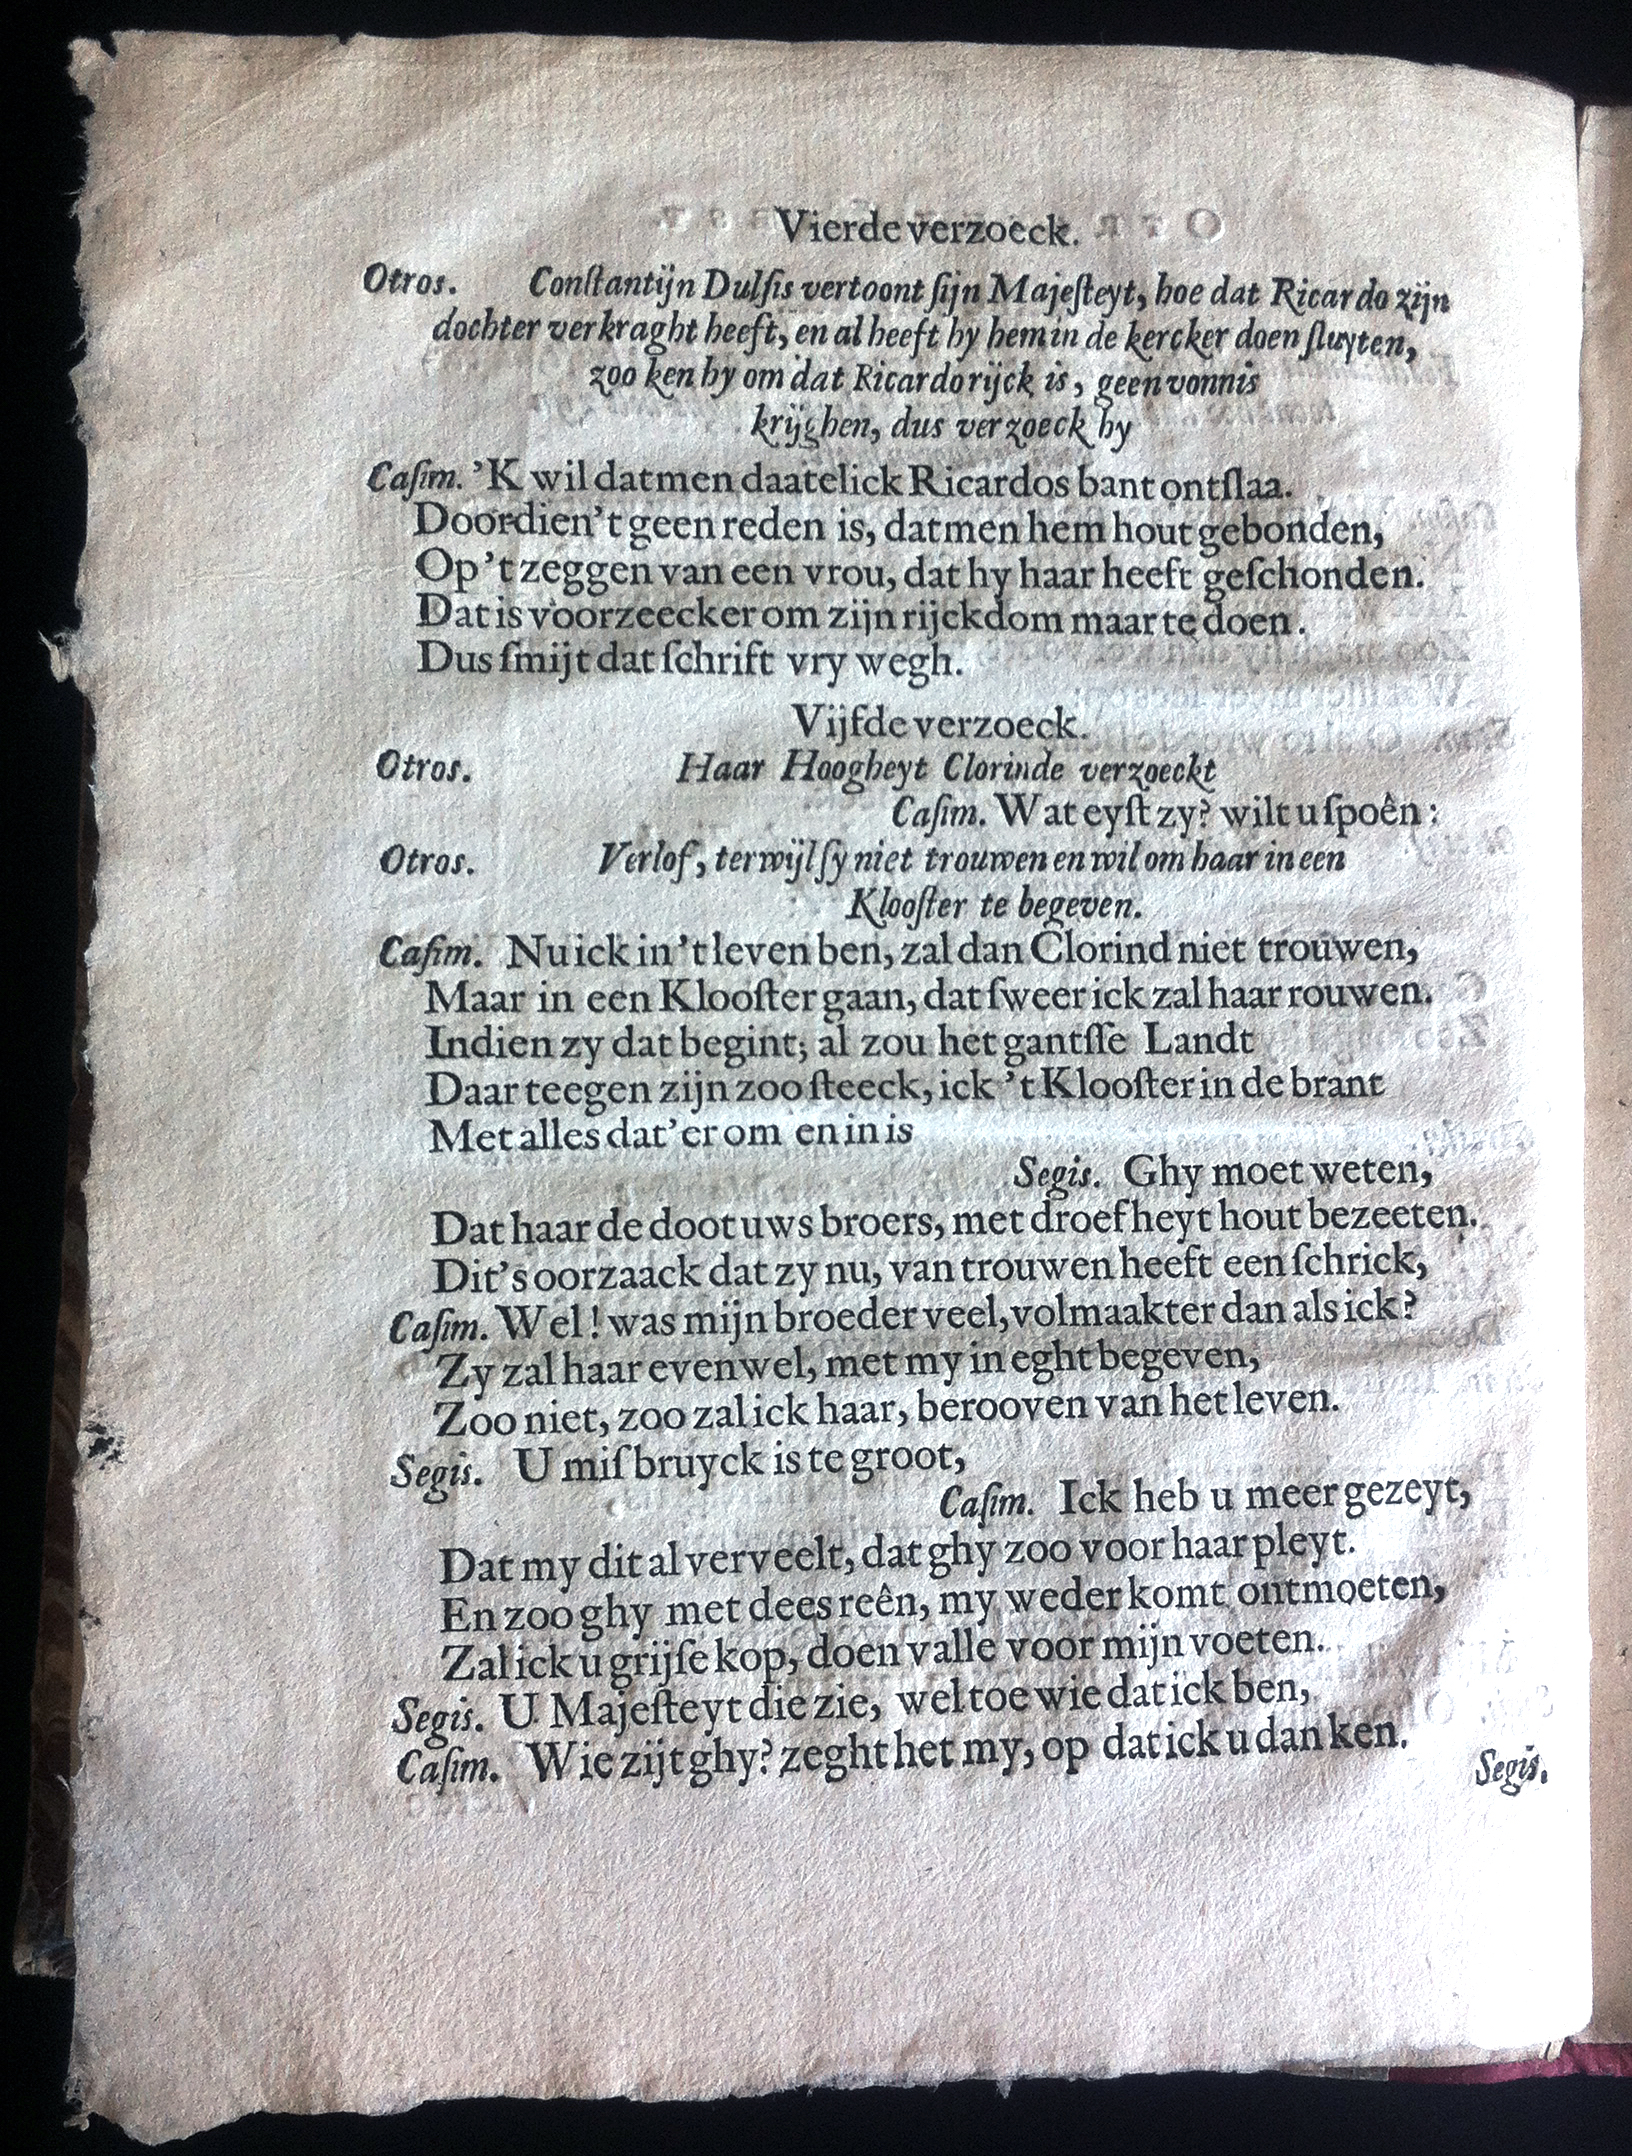 Vierde verzoeck.
Otros. Conſtantijn Dulſis vertoont ſijn Majeſteyt, hoe dat Ricardo zijn
dochter verkraght heeft, en al heeft hy hem in de kercker doen ſluyten,
zoo ken hy om dat Ricardo rijck is, geen vonnis
krijghen, dus verzoeck hy
Caſim. 'K wil datmen daatelick Ricardos bant ontſlaa.
Doordien't geen reden is, datmen hem hout gebonden,
Op't zeggen van een vrou, dat hy haar heeft geſchonden.
Dat is voorzeecker om zijn rijckdom maar te doen.
Dus ſmijt dat ſchrift vry wegh.
Vijfde verzoeck.
Otros. Haar Hoogheyt Clorinde verzoeckt
Caſim. Wat eyſt zy? wilt u ſpoên:
Otros. Verlof, terwijl ſy niet trouwen en wil om haar in een
Klooſter te begeven.
Caſim. Nu ick in't leven ben, zal dan Clorind niet trouwen,
Maar in een Klooſter gaan, dat ſweer ick zal haar rouwen.
Indien zy dat begint; al zou het gantſſe Landt
Daar teegen zijn zoo ſteeck, ick 't Klooſter in de brant
Met alles dat'er om en in is
Segis. Ghy moet weten,
Dat haar de doot uws broers, met droefheyt hout bezeeten.
Dit's oorzaack dat zy nu, van trouwen heeft een ſchrick,
Caſim. Wel! was mijn broeder veel, volmaakter dan als ick?
Zy zal haar evenwel, met my in eght begeven,
Zoo niet, zoo zal ick haar, berooven van het leven.
Segis. U miſbruyck is te groot,
Caſim. Ick heb u meer gezeyt,
Dat my dit al verveelt, dat ghy zoo voor haar pleyt.
En zoo ghy met dees reên, my weder komt ontmoeten,
Zal ick u grijſe kop, doen valle voor mijn voeten.
Segis. U Majeſteyt die zie, wel toe wie dat ick ben,
Caſim. Wie zijt ghy? zeght het my, op dat ick u dan ken.
Segis.